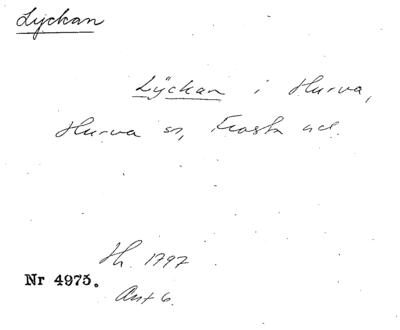 Lyckan
Lyckan i Hurva,
Hurva sn, Frosta hd.
Hh. 1797
Nr 4975.
Ant 6.